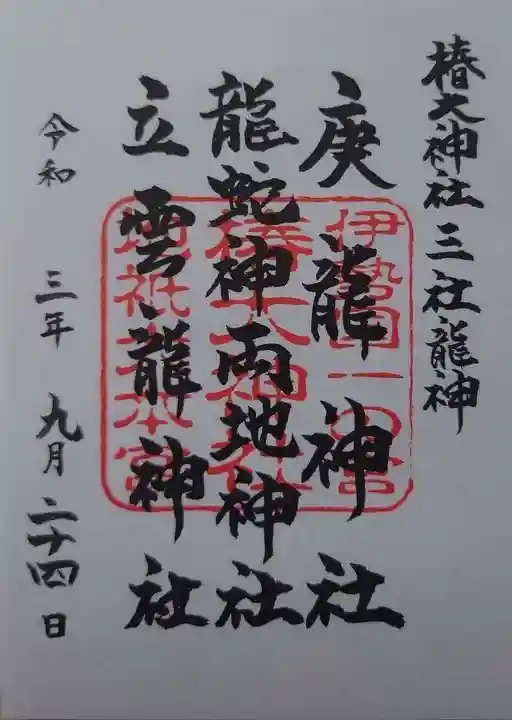 椿大神社 三社龍神
庚龍神社
龍蛇神両地神社
立雲龍神社
令和 三年 九月二十四日
伊勢国一の宮
椿大神社
地祇大本宮